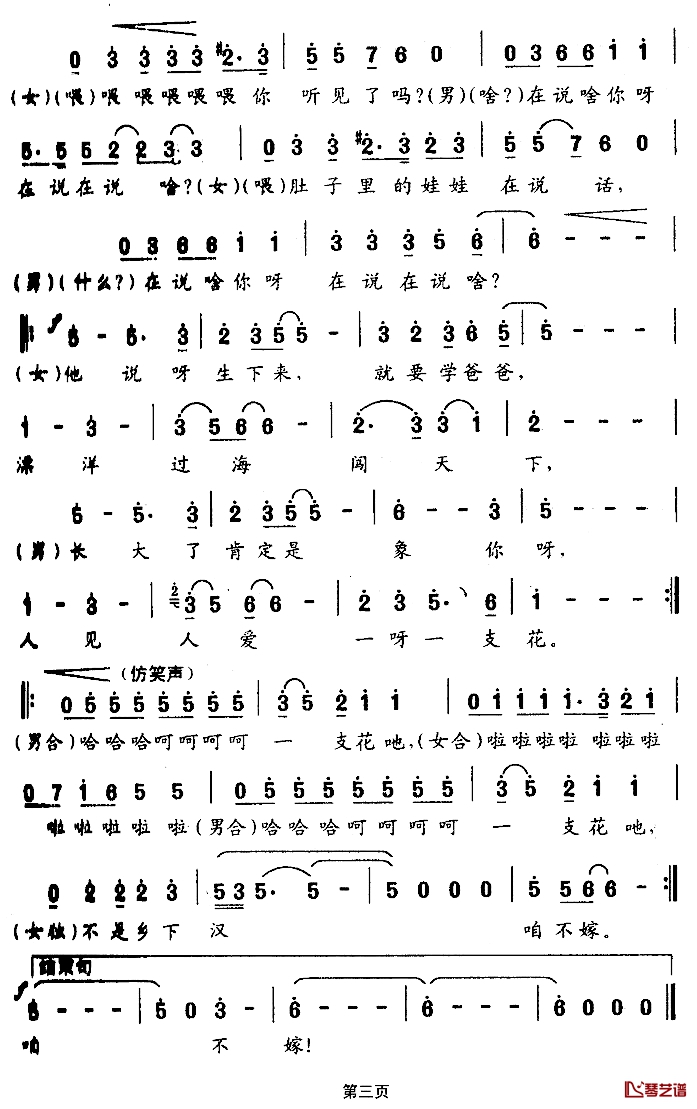 0 3 3 3 3 #2· 3 | 5 5 7 6 0 | 0 3 6 6 i i
(女)(喂)喂 喂喂喂喂 你 听见了吗?(男)(啥?)在说啥你呀
5· 5 5 2 2 3 3 | 0 3 3 #2· 3 2 3 | 5 5 7 6 0
在说在说 啥?(女)(喂)肚子里的娃娃 在说 话,
0 3 6 6 i i | 3 3 3 5 6 | 6 - - -
(男)(什么?)在说啥你呀 在说在说啥?
5 - 5· 3 | 2 3 5 5 - | 3 2 3 6 5 | 5 - - -
(女)他 说 呀 生下来, 就要学爸爸,
1 - 3 - | 3 5 6 6 - | 2· 3 3 1 | 2 - - -
漂 洋 过 海 闯 天 下,
5 - 5· 3 | 2 3 5 5 - | 6 - - 3 | 5 - - -
(男)长 大 了 肯定是 象 你 呀,
1 - 3 - | 2 3 5 6 6 - | 2 3 5· 6 | 1 - - - :‖
人 见 人 爱 一呀一 支 花。
(仿笑声)
‖: 0 5 5 5 5 5 5 5 | 3 5 2 1 1 | 0 1 1 1 1· 3 2 1
(男合)哈哈哈呵呵呵呵 一 支花吔,(女合)啦啦啦啦 啦啦啦
0 7 1 6 5 5 | 0 5 5 5 5 5 5 5 | 3 5 2 1 1
啦啦啦啦 啦(男合)哈哈哈呵呵呵呵 一 支花吔,
0 2 2 2 3 | 5 3 5· 5 - | 5 0 0 0 | 5 5 6 6 - :‖
(女独)不是乡下 汉 咱不嫁。
结束句
5 - - - | 5 0 3 - | 6 - - - | 6 - - - | 6 0 0 0 ‖
咱 不 嫁!
第三页
琴艺谱